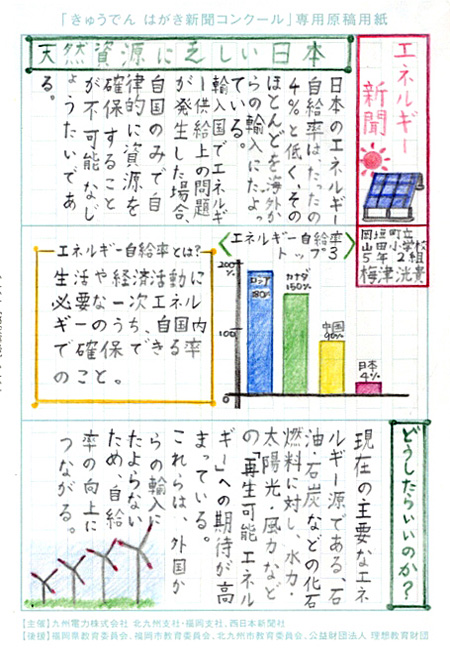 「きゅうでん はがき新聞コンクール」専用原稿用紙
エネルギー
新聞
岡垣町立
山田小学校
5年2組
梅津洸貴
天然資源に乏しい日本
日本のエネルギー
自給率は、たったの
4%と低く、その
ほとんどを海外か
らの輸入にたよっ
ている。
輸入国でエネルギ
ー供給上の問題
が発生した場合、
自国のみで自
律的に資源を
確保すること
が不可能なじ
ょうたいであ
る。
エネルギー自給率とは?
生活や経済活動に
必要な一次エネル
ギーのうち、自国内
で確保できる率
のこと。
<エネルギー自給率
トップ3>
200
%
100
0
ロシア
180%
カナダ
150%
中国
90%
日本
4%
どうしたらいいのか?
現在の主要なエネ
ルギー源である、石
油・石炭などの化石
燃料に対し、水力・
太陽光・風力など
の「再生可能エネル
ギー」への期待が高
まっている。
これらは、外国か
らの輸入に
たよらない
ため、自給
率の向上に
つながる。
【主催】九州電力株式会社 北九州支社・福岡支社、西日本新聞社
【後援】福岡県教育委員会、福岡市教育委員会、北九州市教育委員会、公益財団法人 理想教育財団